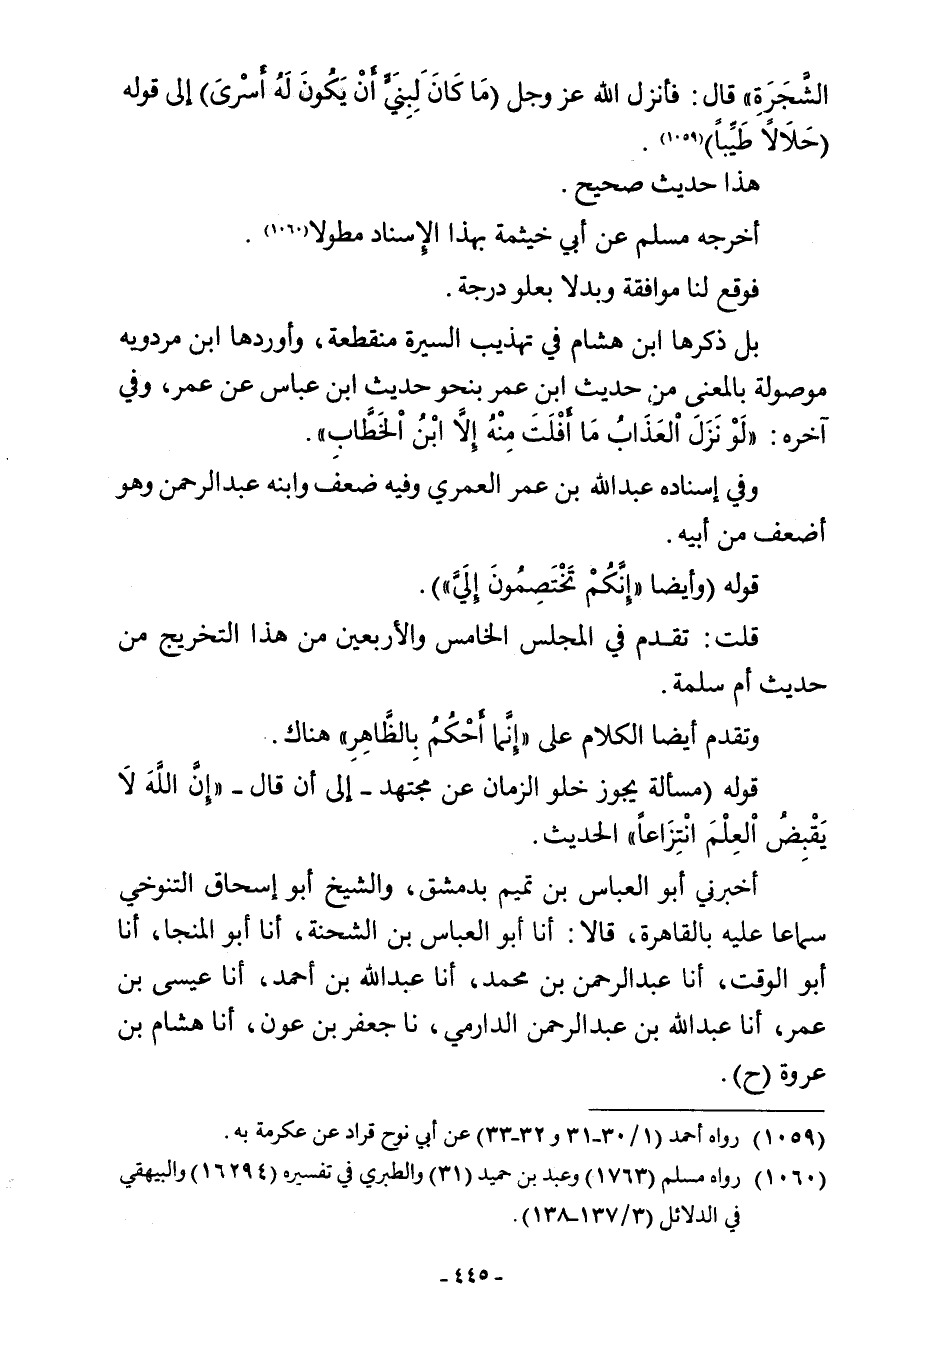 الشَّجَرَةِ» قال: فأنزل الله عز وجل (مَا كَانَ لِنَبِيٍّ أَنْ يَكُونَ لَهُ أَسْرَىَ) إلى قوله
(حَلَالًا طَيِّباً)(١٠٥٩) .
هذا حديث صحيح .
أخرجه مسلم عن أبي خيثمة بهذا الإسناد مطولا(١٠٦٠) .
فوقع لنا موافقة وبدلا بعلو درجة .
بل ذكرها ابن هشام في تهذيب السيرة منقطعة، وأوردها ابن مردويه
موصولة بالمعنى من حديث ابن عمر بنحو حديث ابن عباس عن عمر، وفي
آخره: «لَوْ نَزَلَ اْلعَذَابُ مَا أَفْلَتَ مِنْهُ إِلَّا ابْنُ اْلخَطَّابِ».
وفي إسناده عبدالله بن عمر العمري وفيه ضعف وابنه عبدالرحمن وهو
أضعف من أبيه .
قوله (وأيضا «إِنَّكُمْ تَخْتَصِمُونَ إِلَيَّ»).
قلت: تقدم في المجلس الخامس والأربعين من هذا التخريج من
حديث أم سلمة .
وتقدم أيضا الكلام على «إِنَّمَا أَحْكُمُ بِالظَّاهِرِ» هناك .
قوله (مسألة يجوز خلو الزمان عن مجتهد ـ إلى أن قال ـ «إِنَّ اللَّهَ لَا
يَقْبِضُ اْلعِلْمَ انْتِزَاعاً» الحديث .
أخبرني أبو العباس بن تميم بدمشق، والشيخ أبو إسحاق التنوخي
سماعا عليه بالقاهرة، قالا: أنا أبو العباس بن الشحنة، أنا أبو المنجا، أنا
أبو الوقت، أنا عبدالرحمن بن محمد، أنا عبدالله بن أحمد، أنا عيسى بن
عمر، أنا عبدالله بن عبدالرحمن الدارمي، نا جعفر بن عون، أنا هشام بن
عروة (ح) .
(١٠٥٩) رواه أحمد (١/ ٣٠ـ٣١ و ٣٢ـ٣٣) عن أبي نوح قراد عن عكرمة به .
(١٠٦٠) رواه مسلم (١٧٦٣) وعبد بن حميد (٣١) والطبري في تفسيره (١٦٢٩٤) والبيهقي
في الدلائل (٣/ ١٣٧ـ١٣٨) .
ـ ٤٤٥ ـ